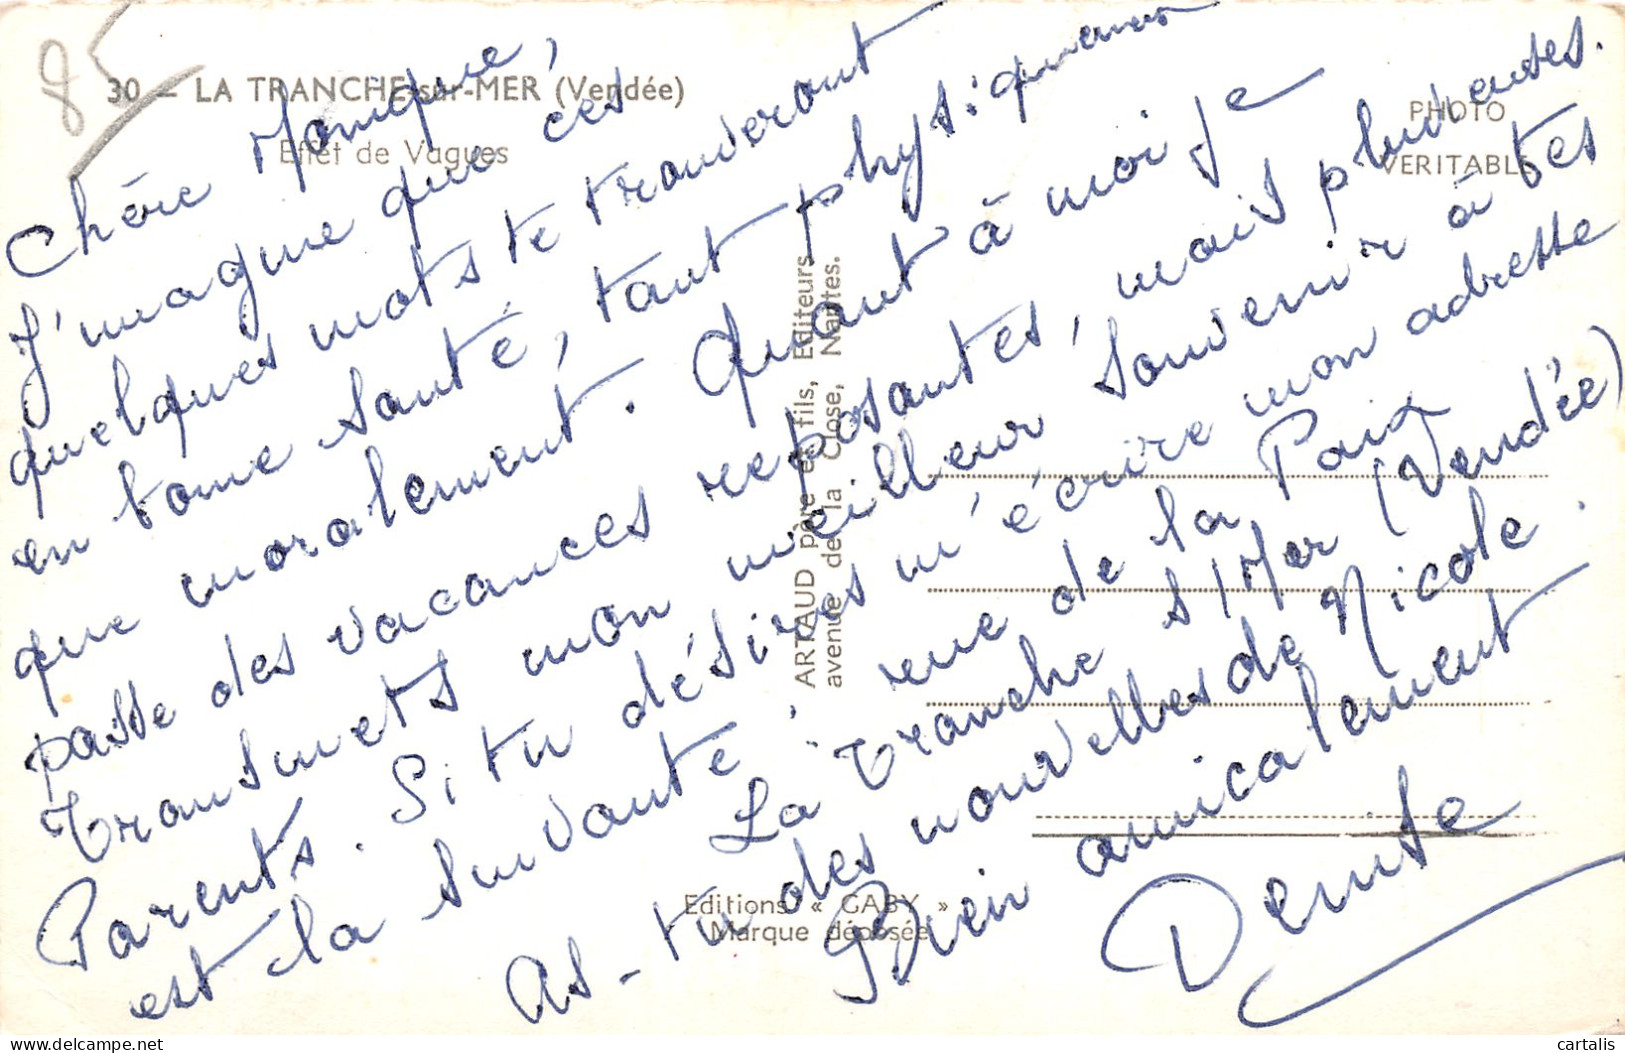 85
30 — LA TRANCHE-sur-MER (Vendée)
Effet de Vagues
PHOTO
VERITABLE
Chère Monique,
J'imagine que ces
quelques mots te trouveront
en bonne santé, tant physiquement
que moralement. Quant à moi je
passe des vacances reposantes, mais pluvieuses.
Transmets mon meilleur souvenir à tes
Parents. Si tu désires m'écrire mon adresse
est la suivante : rue de la Paix
La Tranche s/Mer (Vendée)
As-tu des nouvelles de Nicole.
Bien amicalement
Denise
ARTAUD père et fils, Editeurs
avenue de la Close, Nantes.
Editions « GABY »
Marque déposée
cartalis